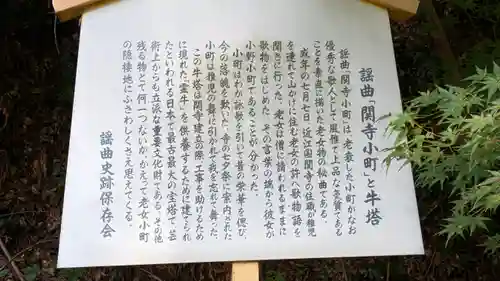 謡曲「関寺小町」と牛塔
謡曲「関寺小町」は、老衰した小町がなお
優秀な歌人として風雅で上品な気質である
ことを素直に描いた老女物の秘曲である。
或年の七月七日、近江国関寺の住職が稚児
を連れて山かげに住む老女の許へ歌物語を
聞きに行った。老女は僧に請われるままに
歌物をはじめた。その言葉の端から彼女が
小野小町であることが分かった。
小町はわが詠歌を引いて昔の栄華を偲び、
今の落魄を歎いた。寺の七夕祭に案内された
小町は稚児の舞に引かれて我を忘れて舞った。
この牛塔は関寺建立の際、工事を助けるため
に現れた「霊牛」を供養するために建てられ
たといわれる日本で最古最大の宝塔で、芸
術上からも立派な重要文化財である。その他
残る物とて何一つないのがかえって老女小町
の隠棲地にふさわしくさえ思えてくる。
謡曲史跡保存会